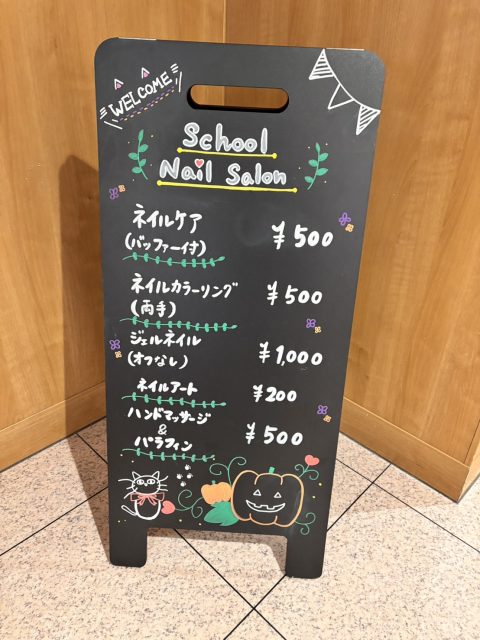 WELCOME
School
Nail Salon
ネイルケア ¥500
(バッファー付)
ネイルカラーリング ¥500
(両手)
ジェルネイル ¥1,000
(オフなし)
ネイルアート ¥200
ハンドマッサージ ¥500
&
パラフィン